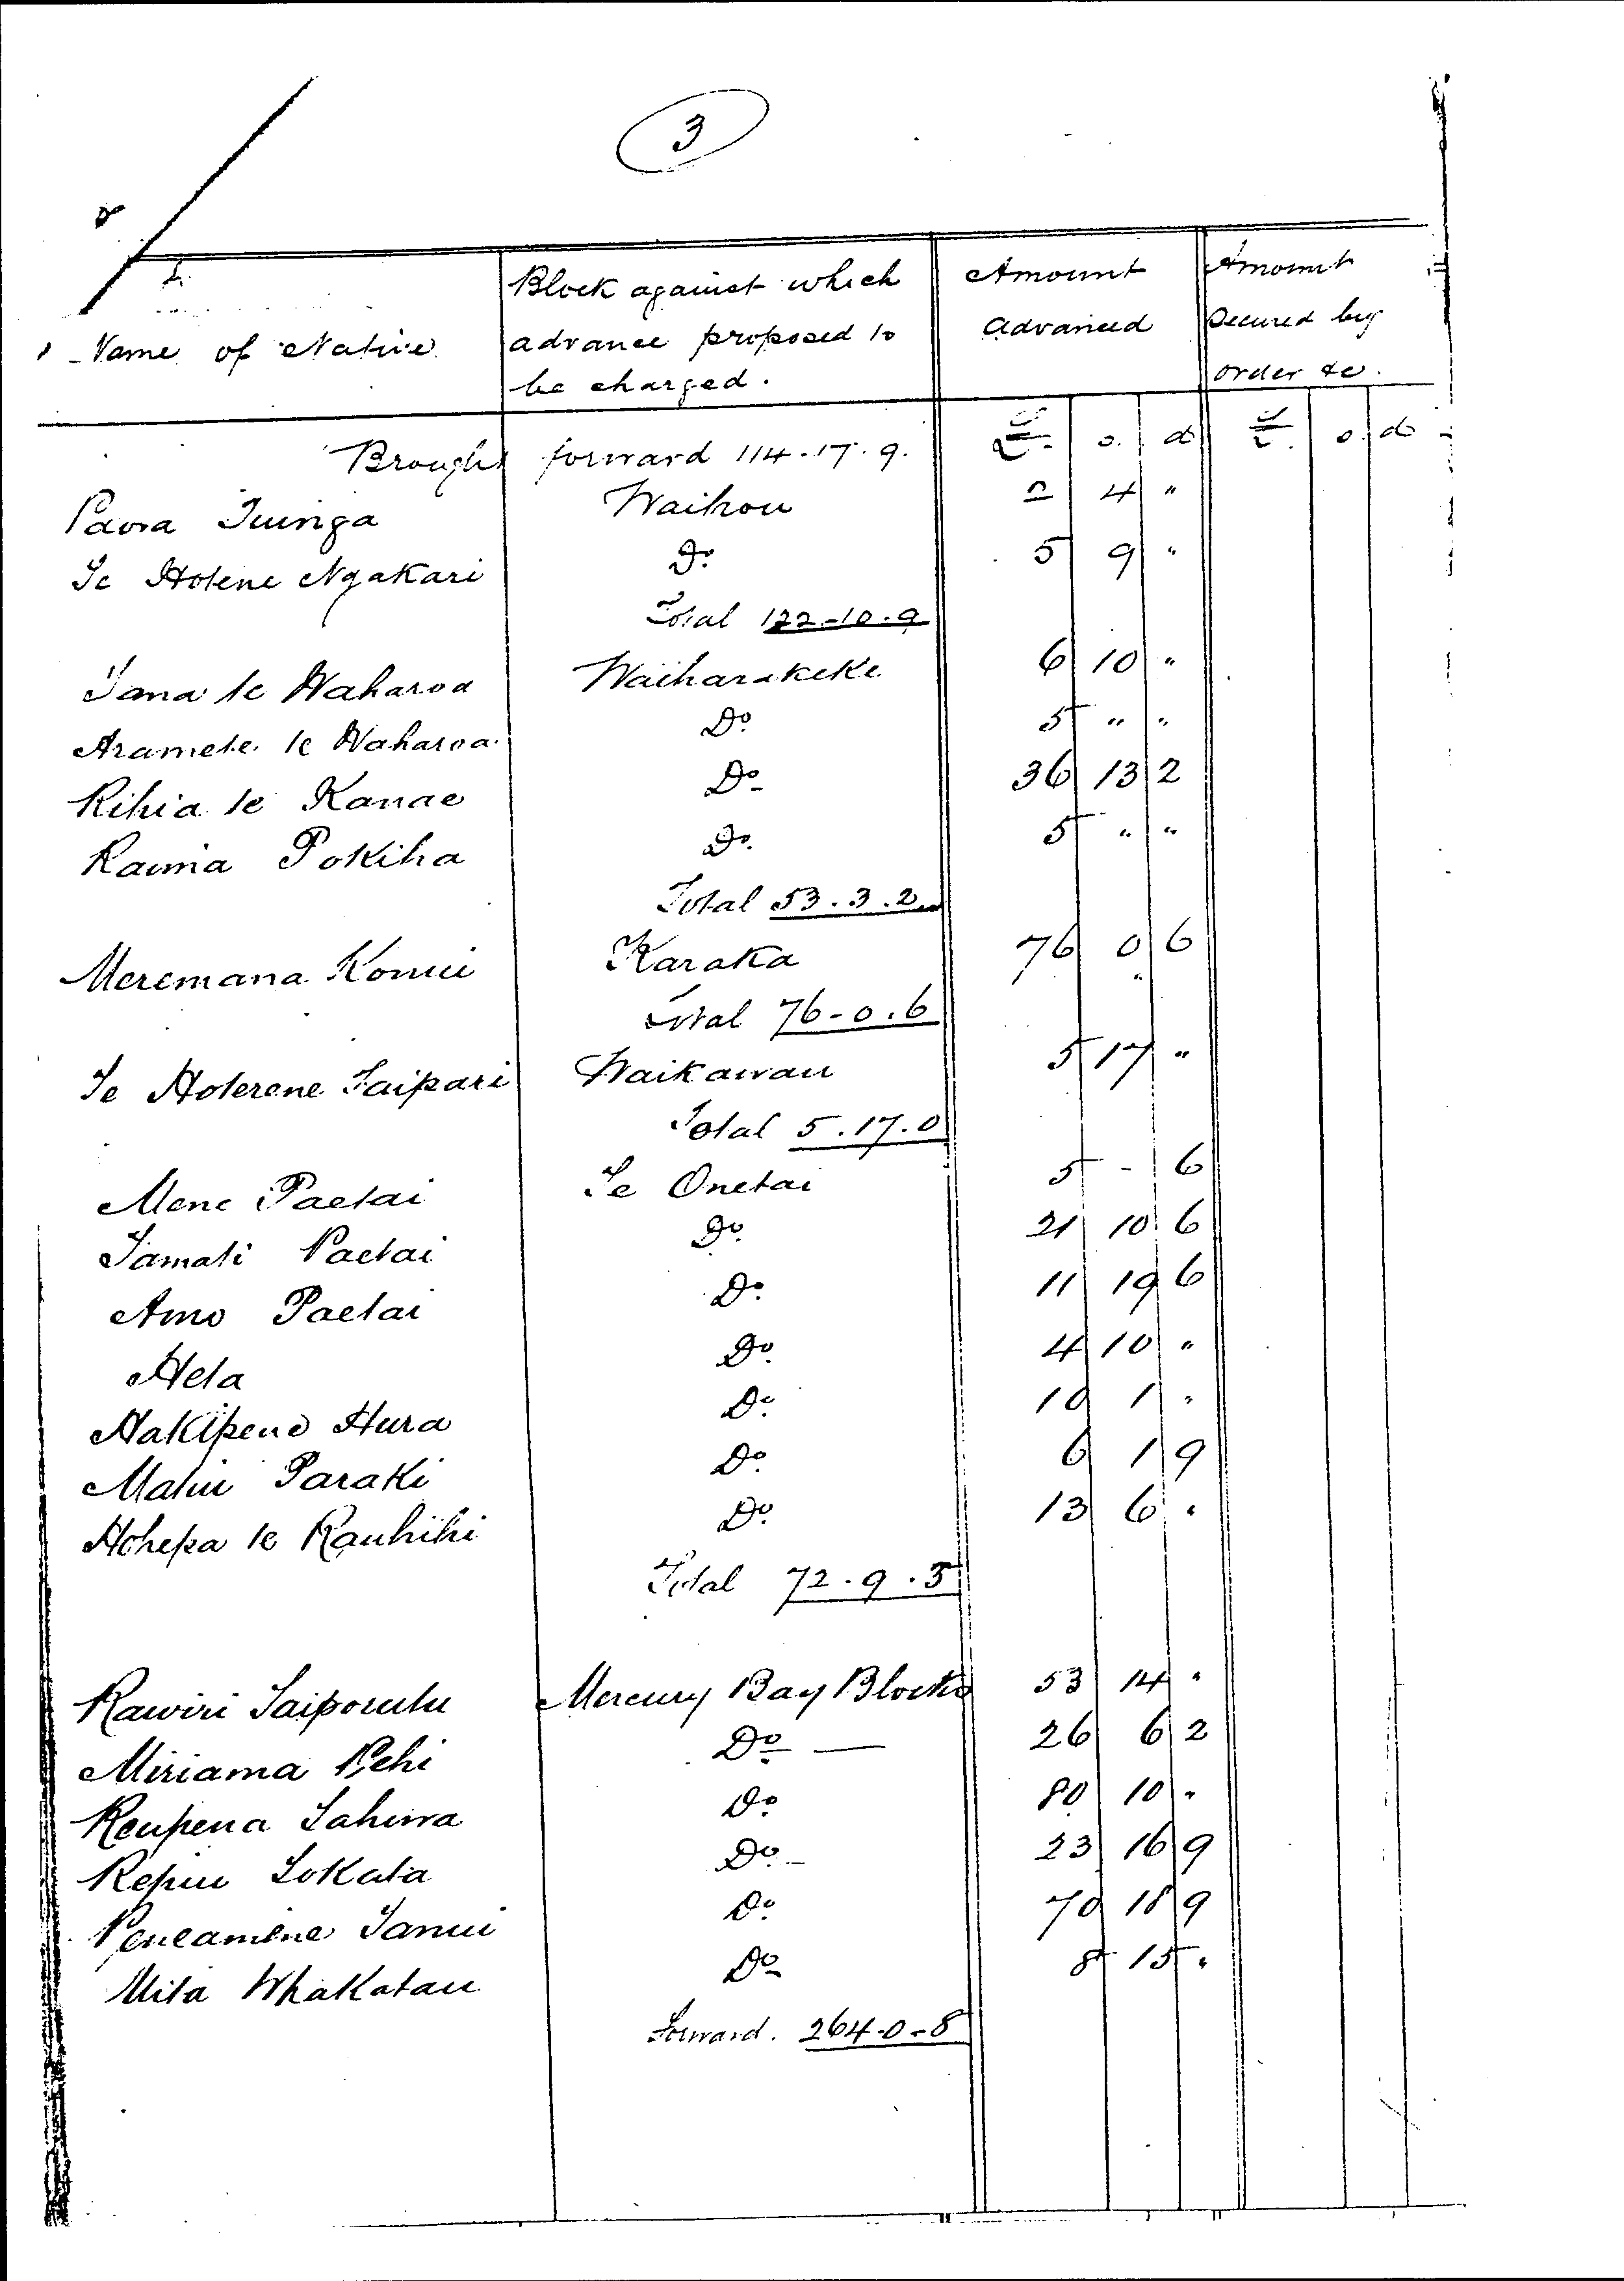 3
Name of Native | Block against which advance proposed to be charged. | Amount advanced | Amount secured by order &c.
£. s. d | £. s. d
Brought forward 114.17.9.
Paora Tuinga Waihou 2 4 "
Te Hotene Ngakari Do. 5 9 "
Total 122-10.9
Tana te Waharoa Waiharakeke 6 10 "
Aramete te Waharoa Do. 5 " "
Rihia te Kanae Do 36 13 2
Rauna Pokiha Do. 5 " "
Total 53.3.2
Meremana Konui Karaka 76 0 6
Total 76-0.6
Te Hoterene Taipari Waikawau 5 17 "
Total 5.17.0
Mene Paetai Te Onetai 5 - 6
Tamati Paetai Do. 21 10 6
Amo Paetai Do. 11 19 6
Heta Do. 4 10 "
Hakipene Hura Do. 10 1 "
Matiu Paraki Do. 6 1 9
Hohepa te Rauhihi Do. 13 6 "
Total 72.9.3
Rawiri Taiporutu Mercury Bay Blocks 53 14 "
Miriama Pehi Do — 26 6 2
Reupena Tahura Do 80 10 "
Repiu Tokata Do. - 23 16 9
Peneamene Tanui Do. 70 18 9
Mita Whakatau Do 8 15 "
Forward. 264-0-8